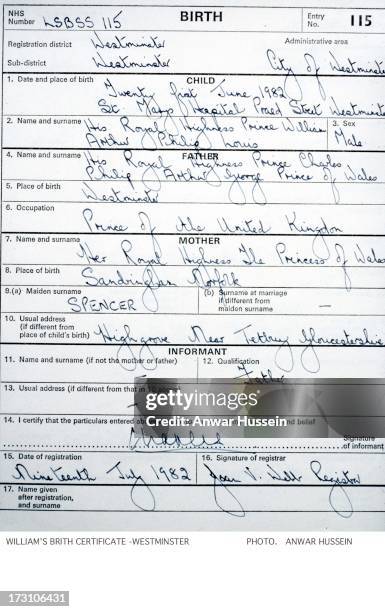 NHS
Number LSBSS 115
BIRTH
Entry
No. 115
Registration district Westminster
Administrative area
Sub-district Westminster
City of Westminster
CHILD
1. Date and place of birth
Twenty first June 1982
St. Marys Hospital Praed Street Westminster
2. Name and surname His Royal Highness Prince William
Arthur Philip Louis
3. Sex
Male
FATHER
4. Name and surname His Royal Highness Prince Charles
Philip Arthur George Prince of Wales
5. Place of birth
Westminster
6. Occupation
Prince of the United Kingdom
MOTHER
7. Name and surname
Her Royal Highness The Princess of Wales
8. Place of birth
Sandringham Norfolk
9.(a) Maiden surname
SPENCER
(b) Surname at marriage
if different from
maiden surname —
10. Usual address
(if different from
place of child's birth)
Highgrove Near Tetbury Gloucestershire
INFORMANT
11. Name and surname (if not the mother or father)
12. Qualification
Father
13. Usual address (if different from that in 10 above)
14. I certify that the particulars entered ab and belief
Charles
Signature
of informant
15. Date of registration
Nineteenth July 1982
16. Signature of registrar
Joan V. Webb Registrar
17. Name given
after registration,
and surname
gettyimages
Credit: Anwar Hussein
WILLIAM'S BRITH CERTIFICATE -WESTMINSTER
PHOTO. ANWAR HUSSEIN
173106431